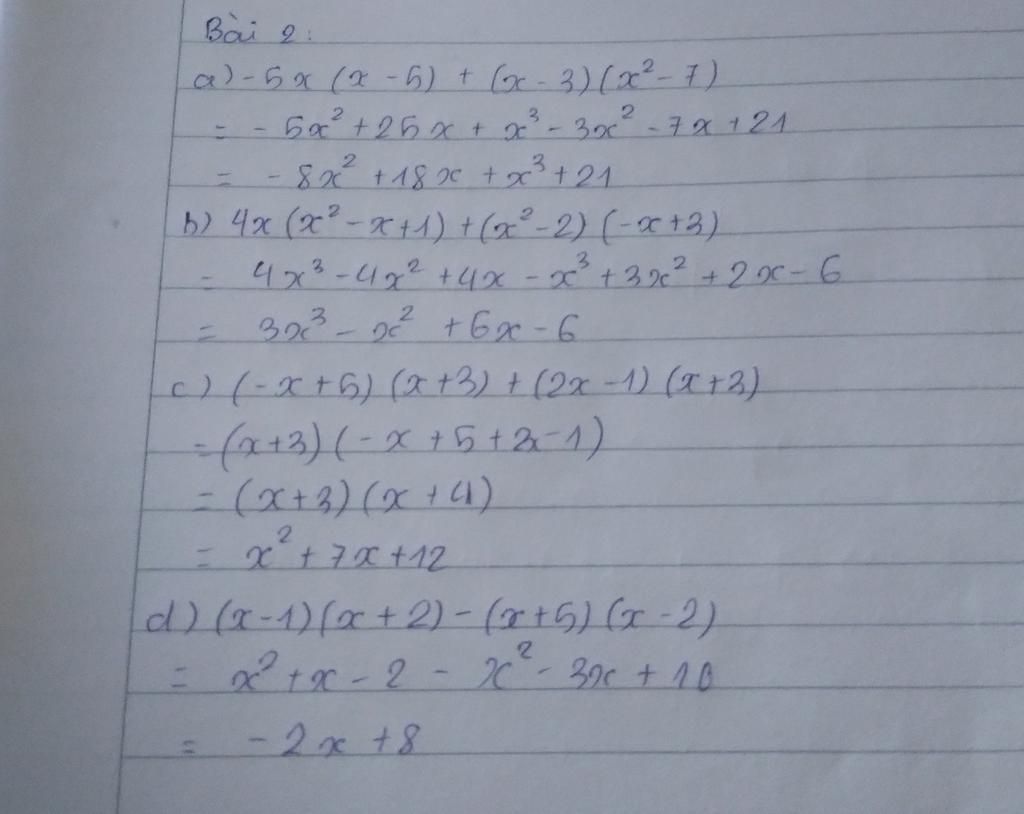 Bài 2:
a) -5x (x - 5) + (x - 3)(x² - 7)
= - 5x² + 25x + x³ - 3x² - 7x + 21
= - 8x² + 18x + x³ + 21
b) 4x (x² - x + 1) + (x² - 2) (-x + 3)
= 4x³ - 4x² + 4x - x³ + 3x² + 2x - 6
= 3x³ - x² + 6x - 6
c) (-x + 5) (x + 3) + (2x - 1) (x + 3)
= (x + 3) (-x + 5 + 2x - 1)
= (x + 3) (x + 4)
= x² + 7x + 12
d) (x - 1)(x + 2) - (x + 5) (x - 2)
= x² + x - 2 - x² - 3x + 10
= - 2x + 8